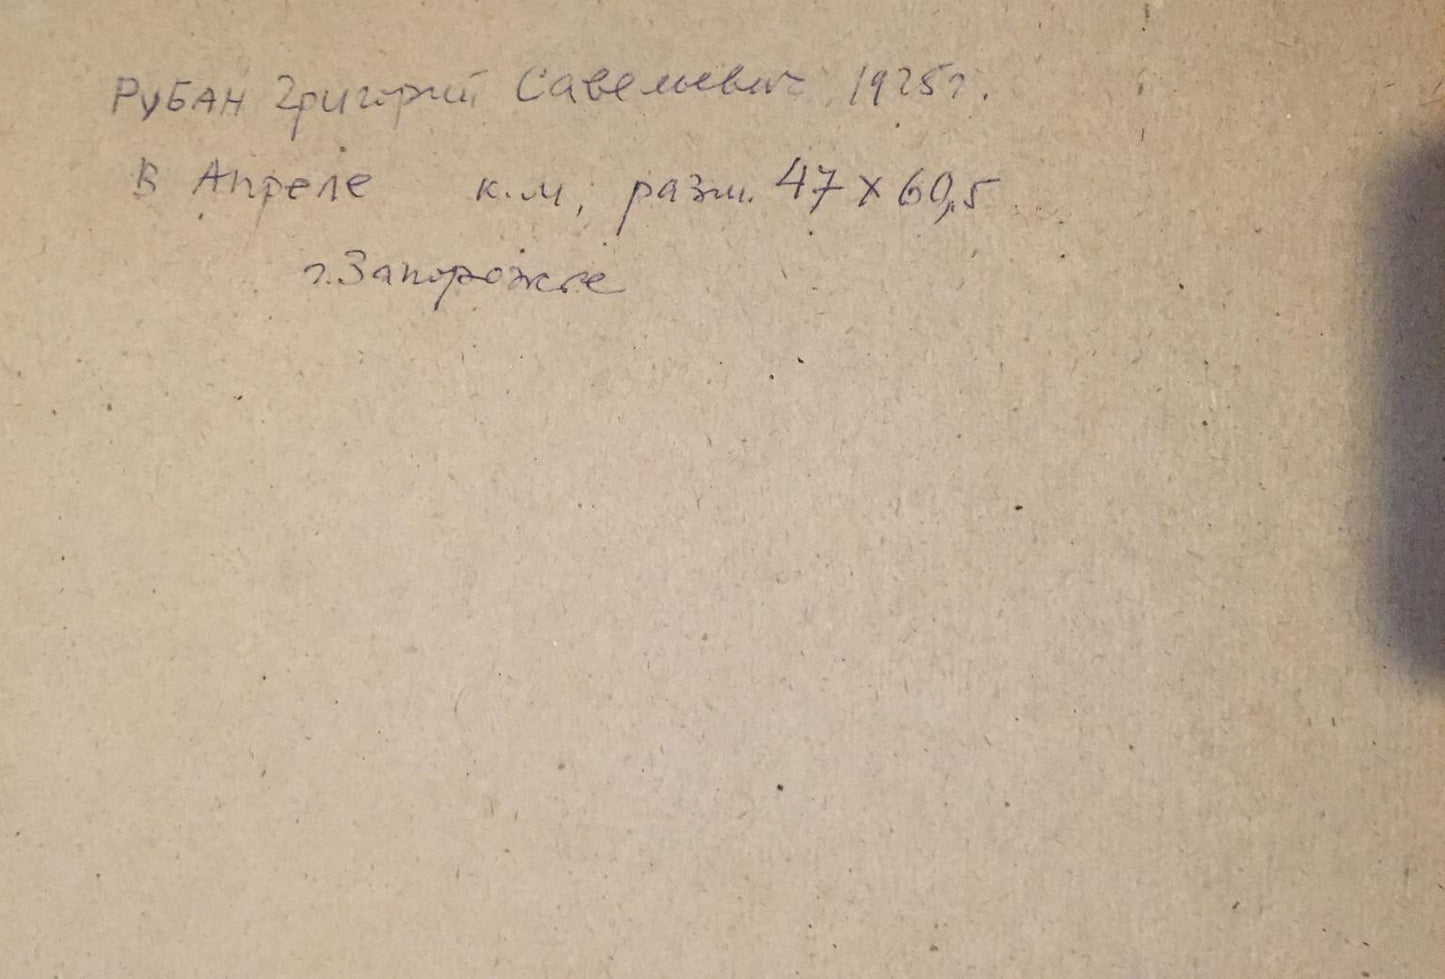 Рубан Григорий Савельевич 1925г.
В Апреле к.м, разм. 47 х 60,5
г.Запорожье